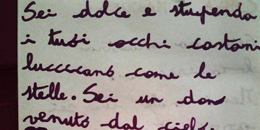 Sei dolce e stupenda
i tuoi occhi castani
luccicano come le
stelle. Sei un dono
venuto dal cielo.